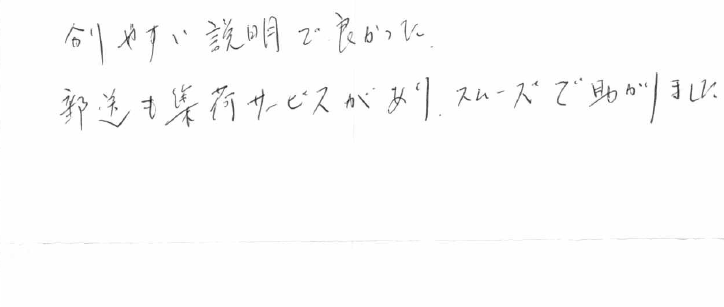 分りやすい説明で良かった.
郵送も集荷サービスがあり.スムーズで助かりました